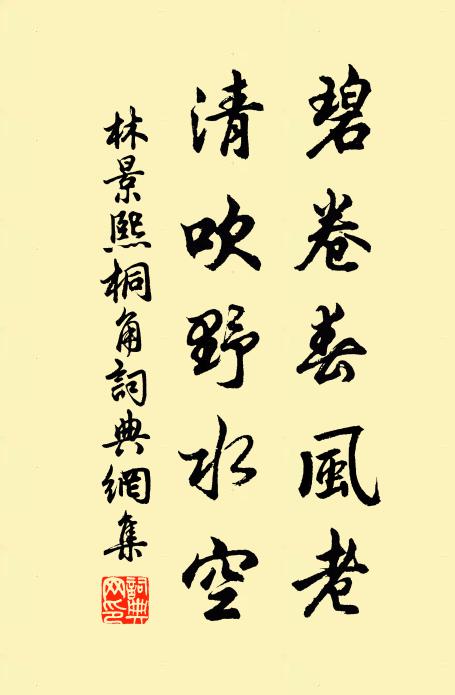 碧卷春風老
清吹野水空
林景熙桐角詞典網集
詞典
网印